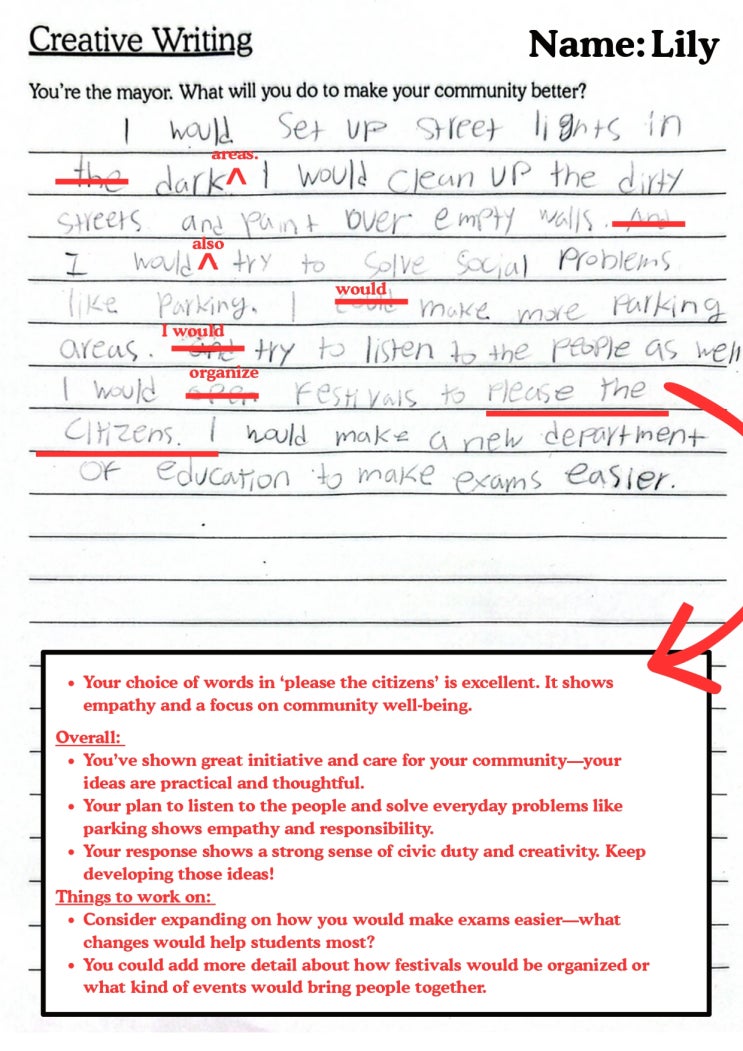 Creative Writing
Name: Lily
You're the mayor. What will you do to make your community better?
I would set up street lights in
areas.
the dark. ^ I would clean up the dirty
streets and paint over empty walls. And
also
I would ^ try to solve social problems
would
like parking. I could make more parking
I would
areas. and try to listen to the people as well
organize
I would open festivals to please the
citizens. I would make a new department
of education to make exams easier.
• Your choice of words in ‘please the citizens’ is excellent. It shows
empathy and a focus on community well-being.
Overall:
• You’ve shown great initiative and care for your community—your
ideas are practical and thoughtful.
• Your plan to listen to the people and solve everyday problems like
parking shows empathy and responsibility.
• Your response shows a strong sense of civic duty and creativity. Keep
developing those ideas!
Things to work on:
• Consider expanding on how you would make exams easier—what
changes would help students most?
• You could add more detail about how festivals would be organized or
what kind of events would bring people together.